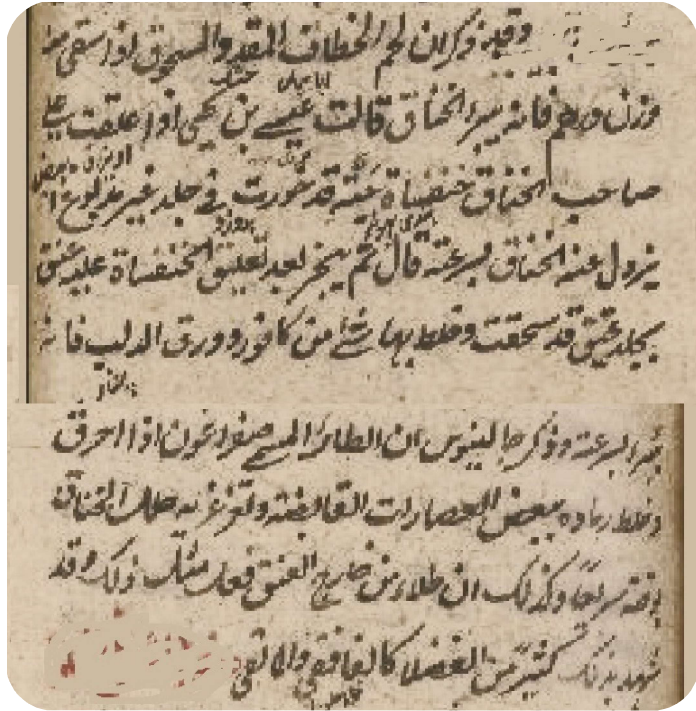 وقيل وذكر ان لحم الخطاف المقدد والمسحوق اذا سقي منه
وزن درهم فانه يبرء الخناق قالت عيسى بن يحيى اذا علقت على
صاحب الخناق خنفساة ميتة قد غورت في جلد غير مدبوغ
يزول عنه الخناق بسرعة قال ثم يبخر بعد تعليق الخنفساة عليه عنق
بجلد عتيق قد سحقت وخلط بها شئ من كافور وورق الدلب فانه
يبرأ بسرعة وذكر جالينوس ان الطائر المسمى صفراغون اذا احرق
وخلط رماده ببعض العصارات القابضة وتغرغر به صاحب الخناق
برئه سريعا وكذلك ان طلا من خارج العنق فعل مثل ذلك وقد
شهد بذلك كثير من الفضلا كالغافقي والمالقي